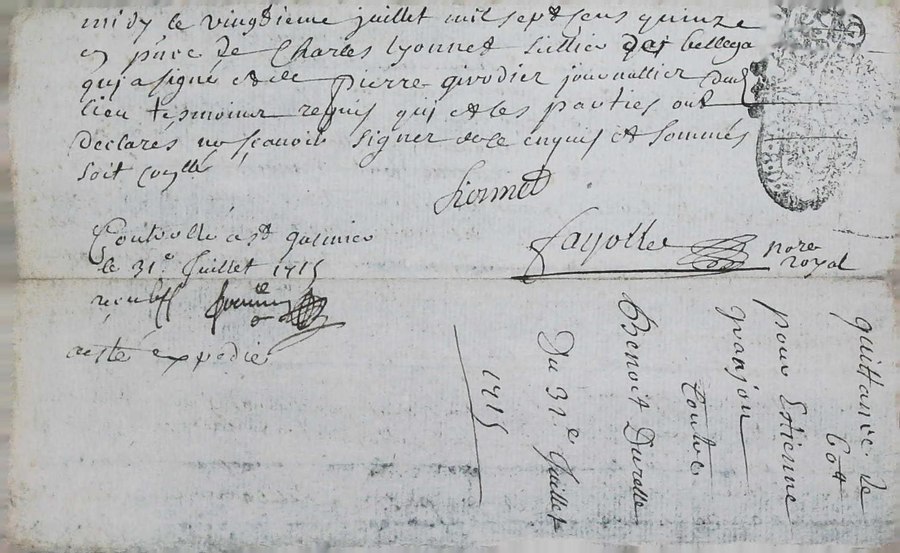 midy le vingdieme juillet mil sept sens quinze
en pñce de Charles lyonnet
qui a signé et de Pierre givodier journallier dud
lieu tesmoins requis qui et les parties ont
declarés ne sçavoir signer de ce enquis et sommés
soit
lionnet
fayolle nore
royal
Controllé a st galmier
le 31e Juillet 1715
acsté expedié
quittance de
60#
pour Estienne
granjon
Contre
Benoit Duralle
Du 31e Juillet
1715